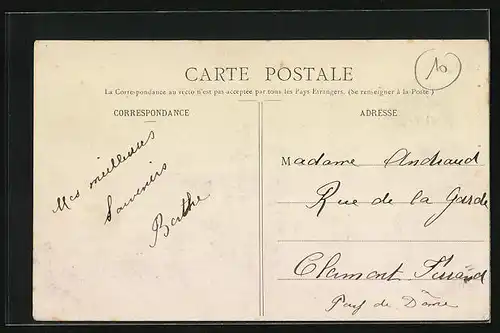 10
CARTE POSTALE
La Correspondance au verso n'est pas acceptée par tous les Pays Etrangers. (Se renseigner à la Poste)
CORRESPONDANCE
ADRESSE
Mes meilleurs
Souvenirs
Berthe
Madame Andraud
Rue de la Garde
Clermont Ferrand
Puy de Dôme